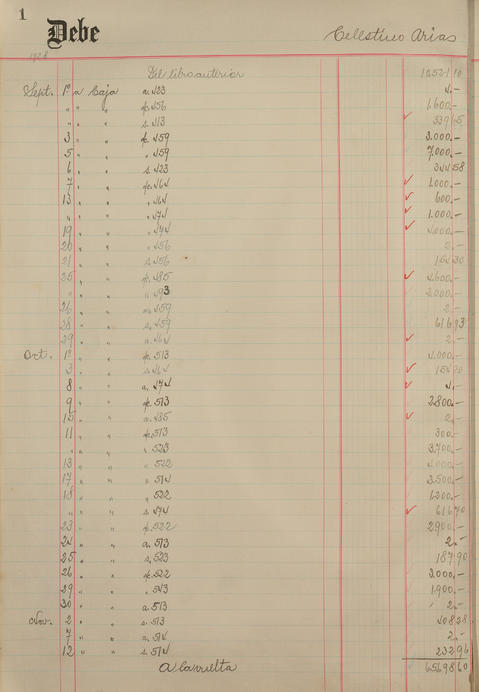 1 Debe Celestino Arias
1928
Del libro anterior 10.521 10
Sept. 1º a Caja a. 423 4.-
" " " 456 1.600.-
" " " s. 413 339
3 " " 459 3.000.-
5 " " " 459 7.000.-
6 " " s. 423 344 58
7 " " 464 1.000.-
13 " " " 464 600.-
" " " " 474 1.000.-
19 " " " 474 4.000.-
20 " " " 456 2.-
21 " " s. 456 154 30
25 " " 485 4.600.-
" " " 493 2.000.-
26 " " 459 2.-
28 " " s. 459 616 93
29 " " a. 464 2.-
Oct. 1º " " 513 4.000.-
3 " " s. 464 154
8 " " a. 474 4.-
9 " " 513 2.800.-
15 " " a. 485 2.-
11 " " 513 300.-
" " " " 523 3.700.-
13 " " " 522 4.000.-
17 " " " 514 3.500.-
18 " " " 522 1.200.-
" " " s. 474 616 70
23 " " 522 2900.-
24 " " a. 513 2.-
25 " " s. 523 187 90
26 " " 522 3.000.-
29 " " " 543 1.900.-
30 " " a. 513 2.-
Nov. 2 " " s. 513 408 28
7 " " a. 514 2.-
12 " " s. 514 232 96
A la vuelta 65698 60